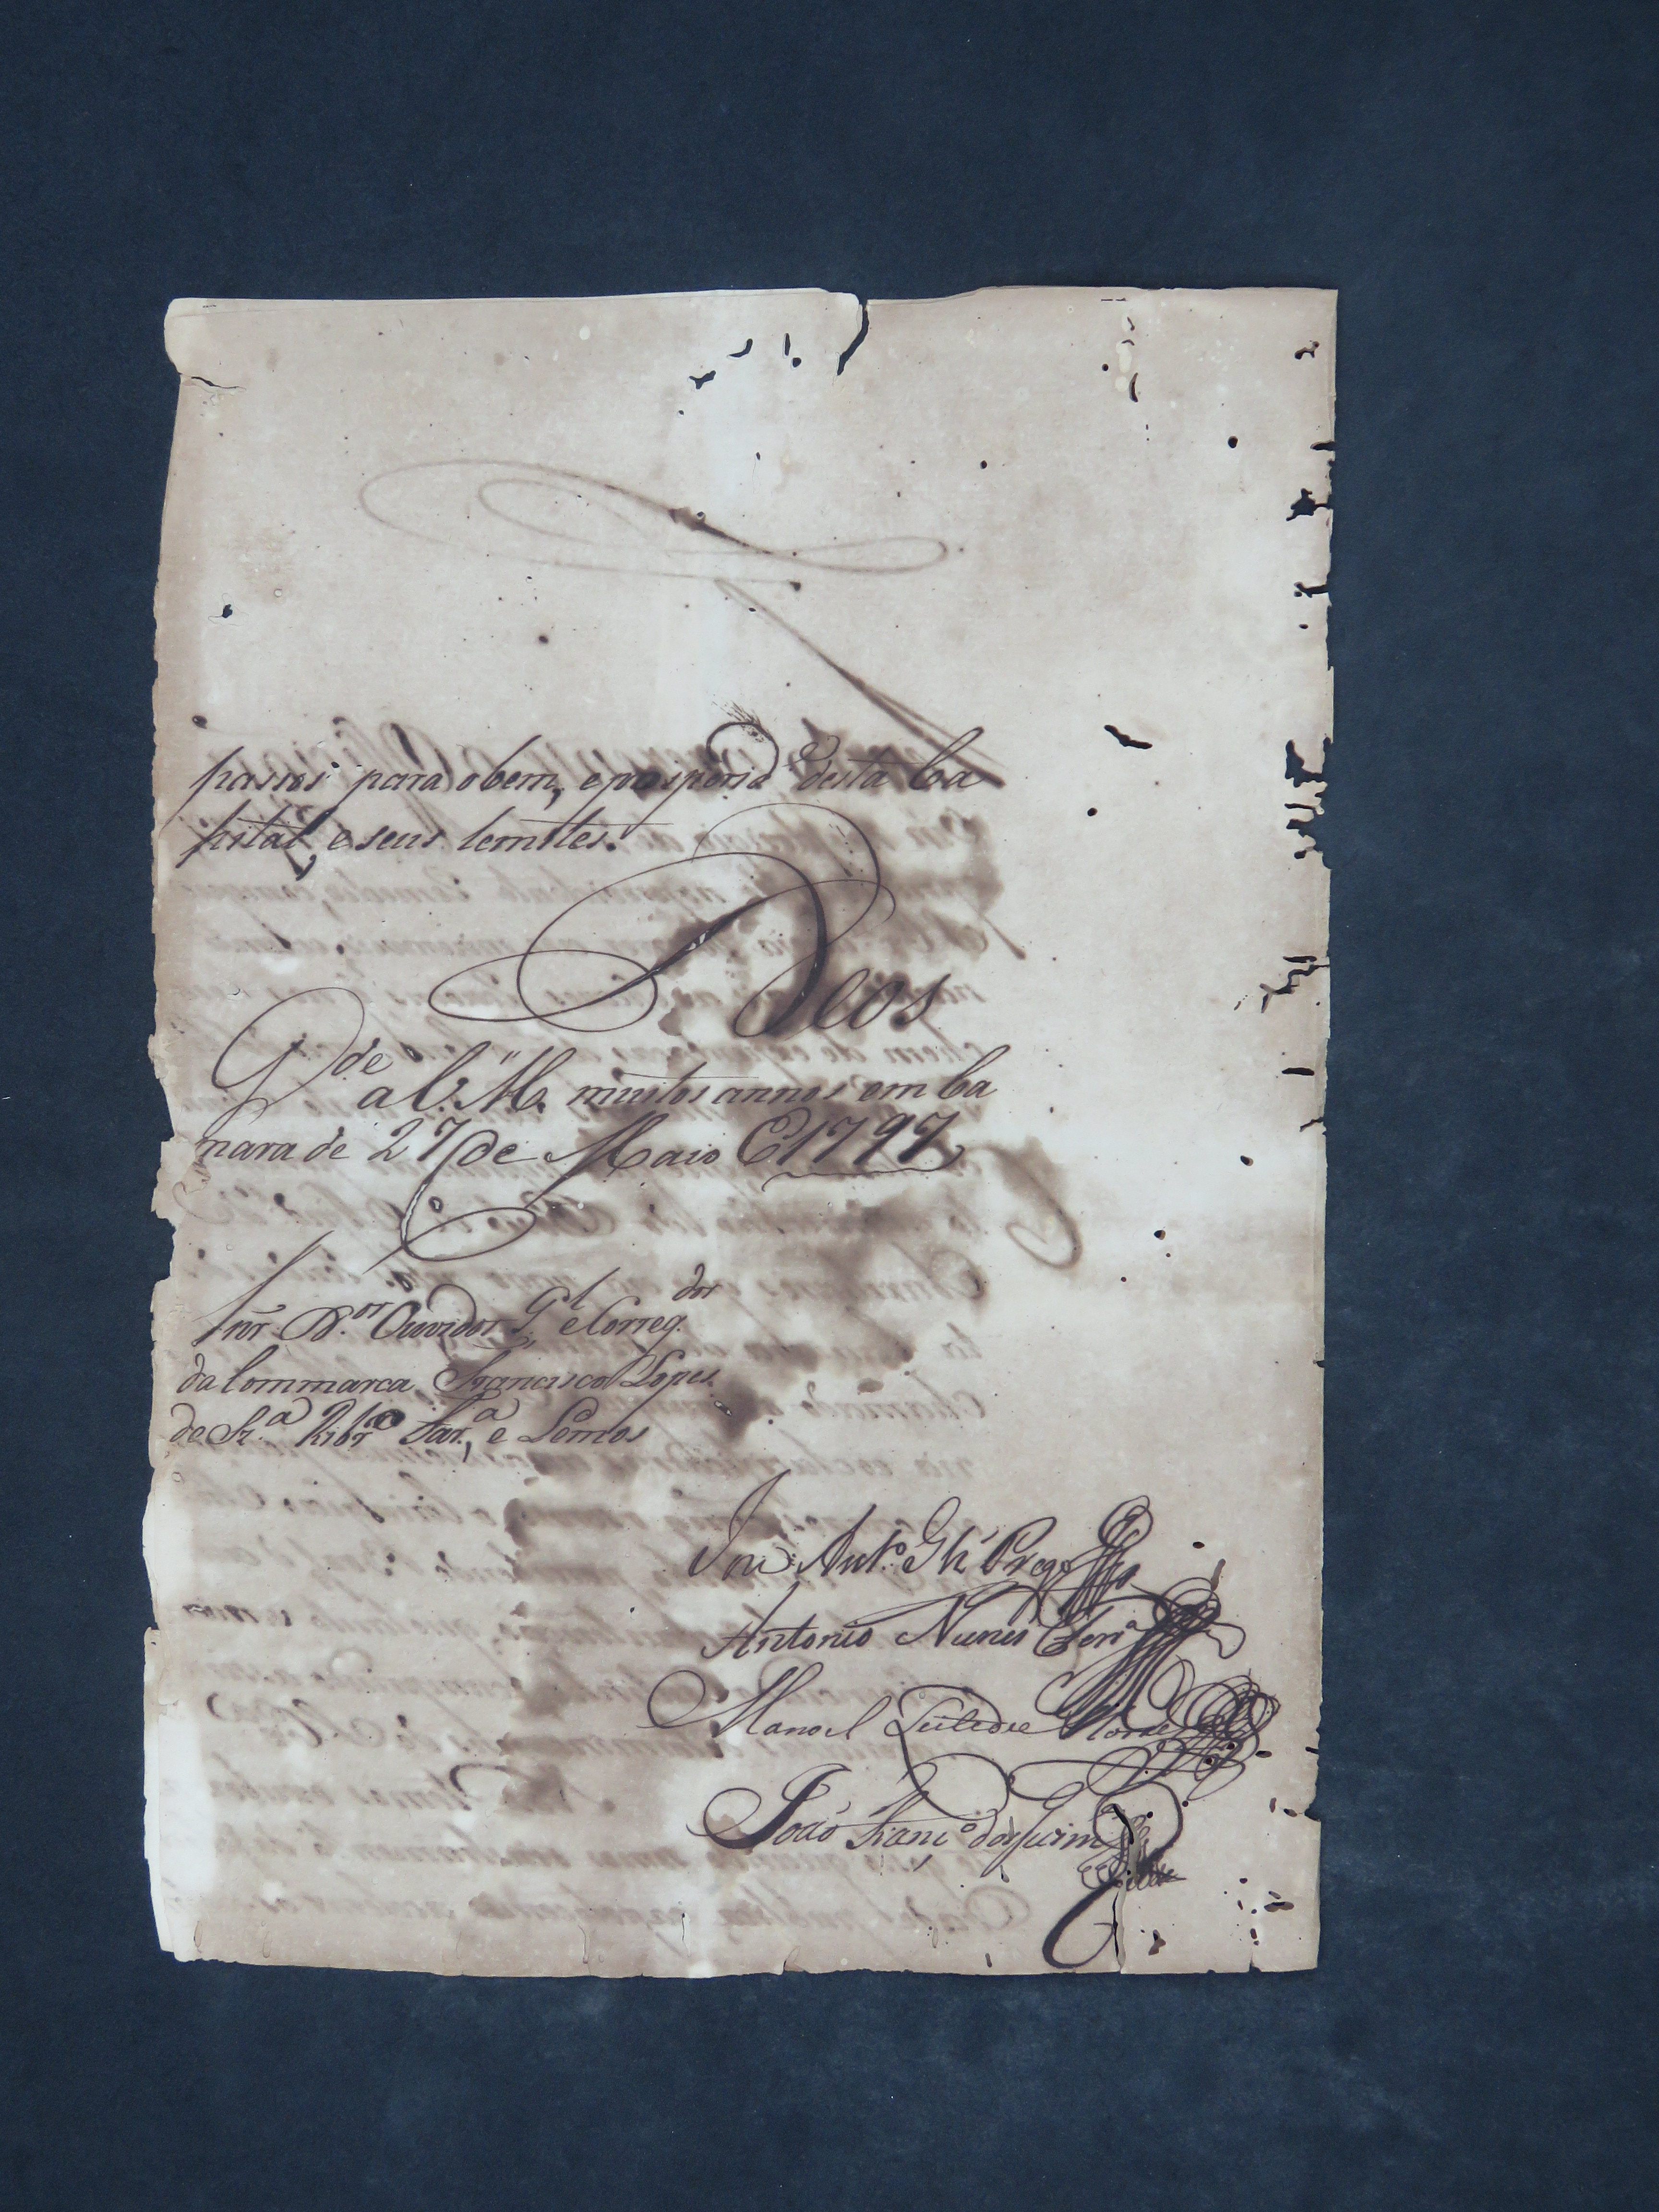 passos para o bem, e prosperid.e desta Ca
pital, e seus lemites.
Deos
G.de a V. M. muitos annos em Ca
mara de 27 de Maio E 1797
Snr. D.or Ouvidor G.l e Correg.dor
da Commarca Francisco Lopes
de Sz.a Ribr.o Far.a e Lemos
Ant.o
Antonio Nunes Ferr.a
Manoel
João Fran.co dos Guim